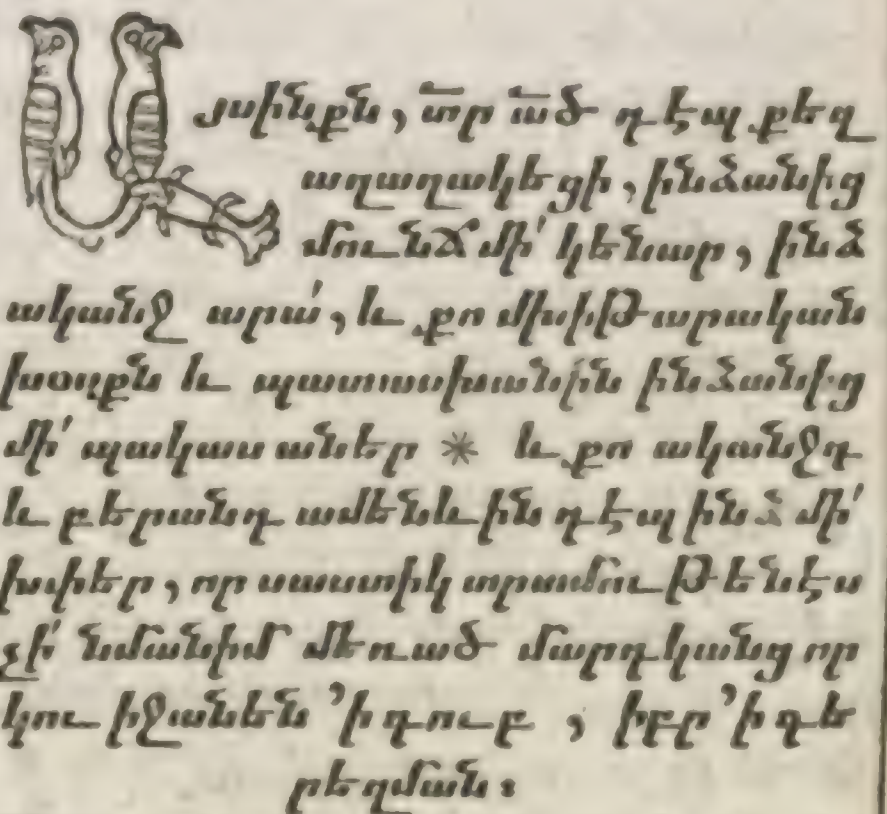 Այսինքն, տ̅ր ա̅ծ դէպ քեզ
աղաղակեցի, ինձանից
մունճ մի՛ կենար, ինձ
ականջ արա՛, և քո մխիթարական
խօսքն և պատասխանին ինձանից
մի՛ պակաս աներ * և քո ականջդ
և բերանդ ամենևին դէպ ինձ մի՛
խփեր, որ սաստիկ տրտմութենէս
չի՛ նմանիմ մեռած մարդկանց որ
կու իջանեն ՚ի գուբ, իբր ՚ի գե
րեզման։